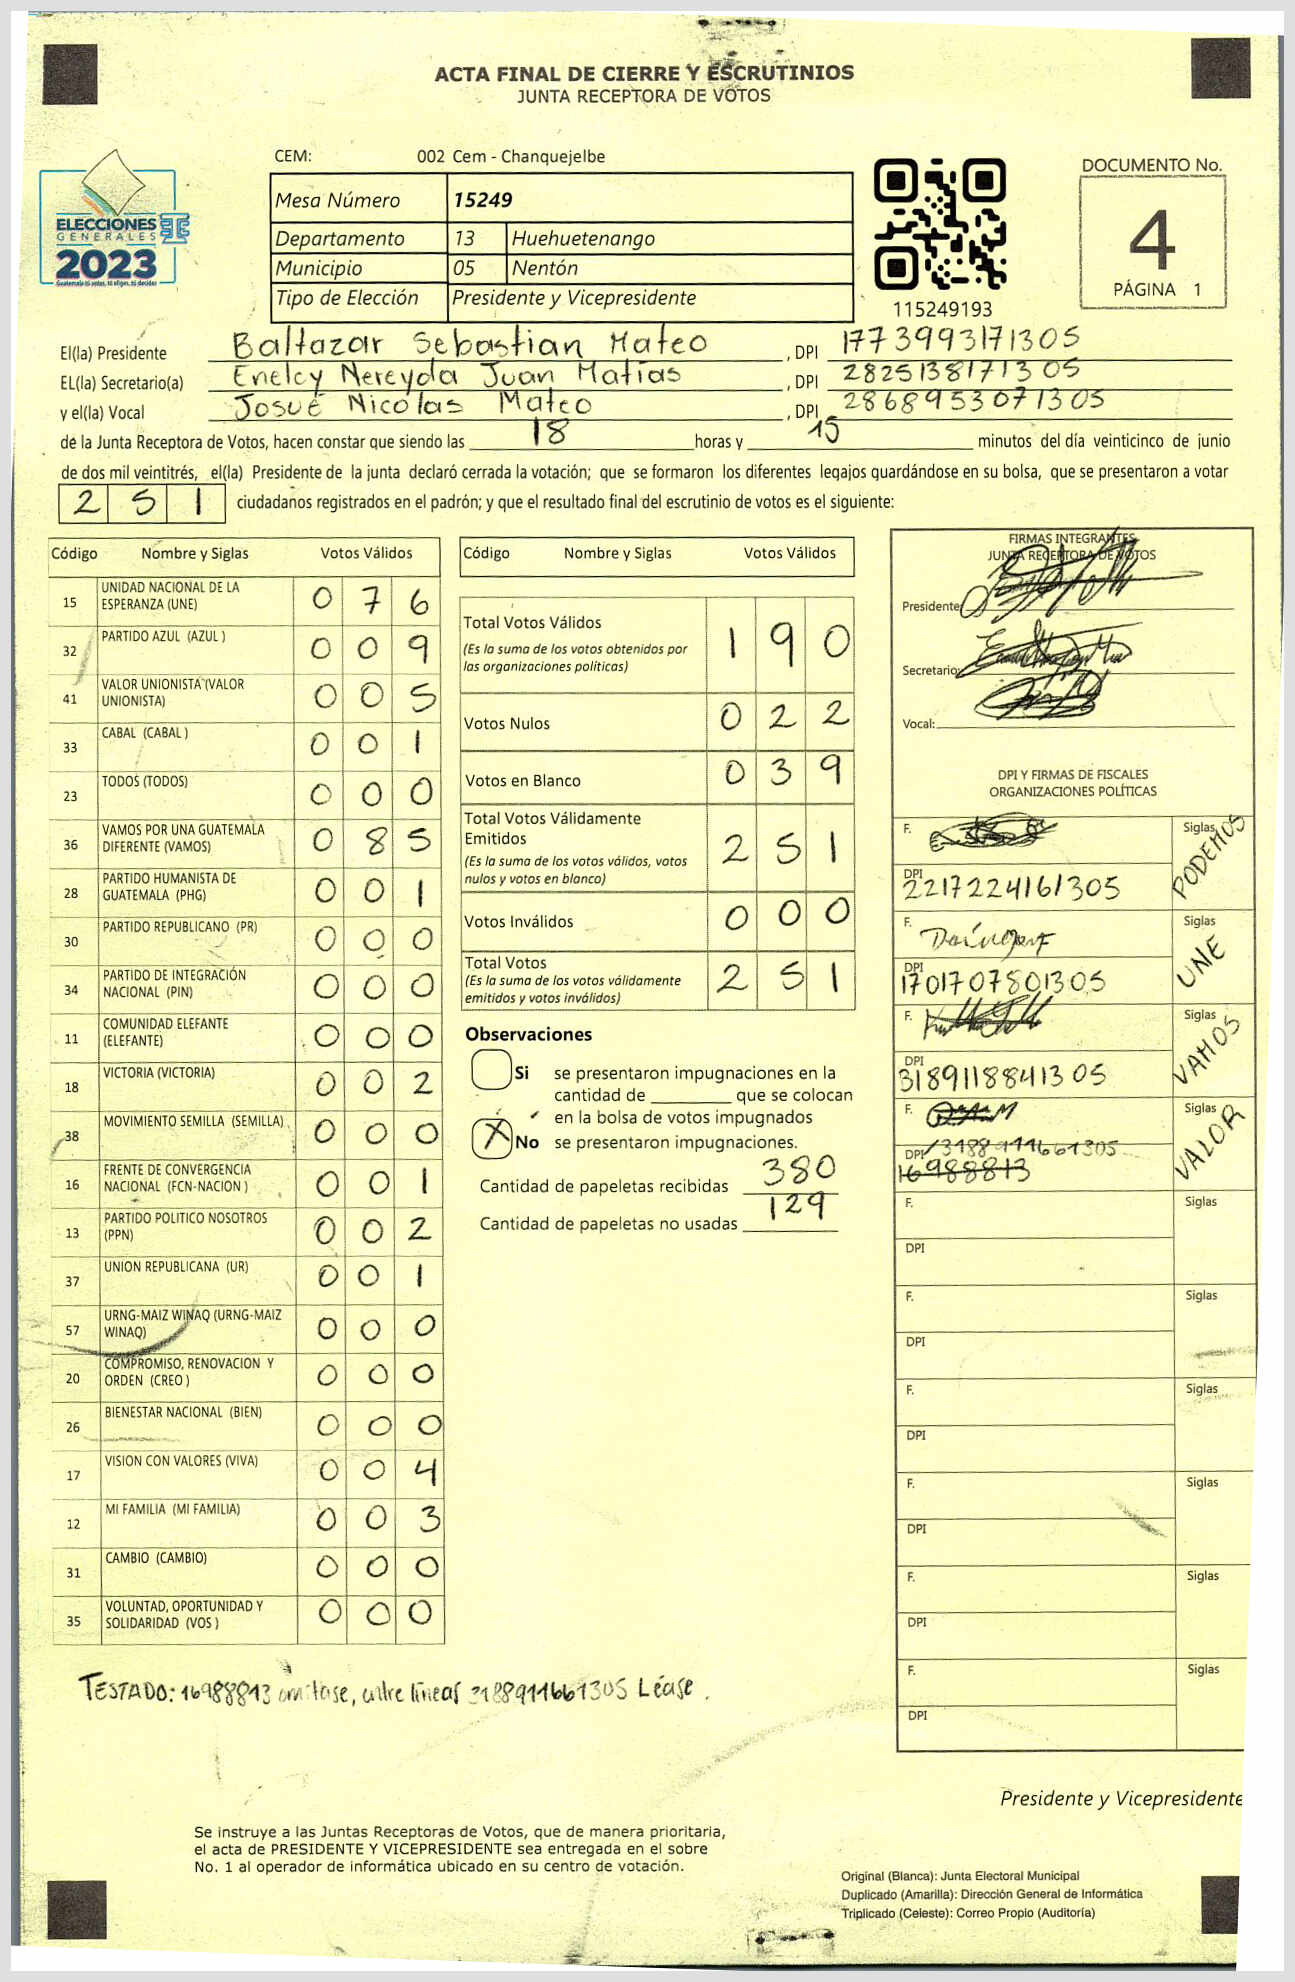 ACTA FINAL DE CIERRE Y ESCRUTINIOS
JUNTA RECEPTORA DE VOTOS
CEM: 002 Cem - Chanquejelbe
Mesa Número 15249
Departamento 13 Huehuetenango
Municipio 05 Nentón
Tipo de Elección Presidente y Vicepresidente
ELECCIONES
GENERALES
2023
Guatemala tú votas, tú eliges, tú decides
115249193
DOCUMENTO No.
4
PÁGINA 1
El(la) Presidente Baltazar Sebastian Mateo , DPI 1773993171305
EL(la) Secretario(a) Enelcy Nereyda Juan Matías , DPI 2825138171305
y el(la) Vocal Josué Nicolas Mateo , DPI 2868953071305
de la Junta Receptora de Votos, hacen constar que siendo las 18 horas y 15 minutos del día veinticinco de junio
de dos mil veintitrés, el(la) Presidente de la junta declaró cerrada la votación; que se formaron los diferentes legajos quardándose en su bolsa, que se presentaron a votar
251 ciudadanos registrados en el padrón; y que el resultado final del escrutinio de votos es el siguiente:
Código Nombre y Siglas Votos Válidos
15 UNIDAD NACIONAL DE LA ESPERANZA (UNE) 0 7 6
32 PARTIDO AZUL (AZUL ) 0 0 9
41 VALOR UNIONISTA (VALOR UNIONISTA) 0 0 5
33 CABAL (CABAL ) 0 0 1
23 TODOS (TODOS) 0 0 0
36 VAMOS POR UNA GUATEMALA DIFERENTE (VAMOS) 0 8 5
28 PARTIDO HUMANISTA DE GUATEMALA (PHG) 0 0 1
30 PARTIDO REPUBLICANO (PR) 0 0 0
34 PARTIDO DE INTEGRACIÓN NACIONAL (PIN) 0 0 0
11 COMUNIDAD ELEFANTE (ELEFANTE) 0 0 0
18 VICTORIA (VICTORIA) 0 0 2
38 MOVIMIENTO SEMILLA (SEMILLA) 0 0 0
16 FRENTE DE CONVERGENCIA NACIONAL (FCN-NACION ) 0 0 1
13 PARTIDO POLITICO NOSOTROS (PPN) 0 0 2
37 UNION REPUBLICANA (UR) 0 0 1
57 URNG-MAIZ WINAQ (URNG-MAIZ WINAQ) 0 0 0
20 COMPROMISO, RENOVACION Y ORDEN (CREO ) 0 0 0
26 BIENESTAR NACIONAL (BIEN) 0 0 0
17 VISION CON VALORES (VIVA) 0 0 4
12 MI FAMILIA (MI FAMILIA) 0 0 3
31 CAMBIO (CAMBIO) 0 0 0
35 VOLUNTAD, OPORTUNIDAD Y SOLIDARIDAD (VOS ) 0 0 0
Código Nombre y Siglas Votos Válidos
Total Votos Válidos 1 9 0
(Es la suma de los votos obtenidos por
las organizaciones políticas)
Votos Nulos 0 2 2
Votos en Blanco 0 3 9
Total Votos Válidamente
Emitidos 2 5 1
(Es la suma de los votos válidos, votos
nulos y votos en blanco)
Votos Inválidos 0 0 0
Total Votos 2 5 1
(Es la suma de los votos válidamente
emitidos y votos inválidos)
Observaciones
Si se presentaron impugnaciones en la
cantidad de ________ que se colocan
en la bolsa de votos impugnados
X No se presentaron impugnaciones.
Cantidad de papeletas recibidas 380
Cantidad de papeletas no usadas 129
FIRMAS INTEGRANTES
JUNTA RECEPTORA DE VOTOS
Presidente:
Secretario:
Vocal:
DPI Y FIRMAS DE FISCALES
ORGANIZACIONES POLÍTICAS
F. Siglas PODEMOS
DPI 2217224161305
F. Siglas UNE
DPI 1701707801305
F. Siglas VAMOS
DPI 3189118841305
F. Siglas VALOR
DPI 3188911661305
16988813
F. Siglas
DPI
F. Siglas
DPI
F. Siglas
DPI
F. Siglas
DPI
F. Siglas
DPI
F. Siglas
DPI
TESTADO: 16988813 omítase, entre líneas 3188911661305 Léase.
Presidente y Vicepresidente
Se instruye a las Juntas Receptoras de Votos, que de manera prioritaria,
el acta de PRESIDENTE Y VICEPRESIDENTE sea entregada en el sobre
No. 1 al operador de informática ubicado en su centro de votación.
Original (Blanca): Junta Electoral Municipal
Duplicado (Amarilla): Dirección General de Informática
Triplicado (Celeste): Correo Propio (Auditoría)